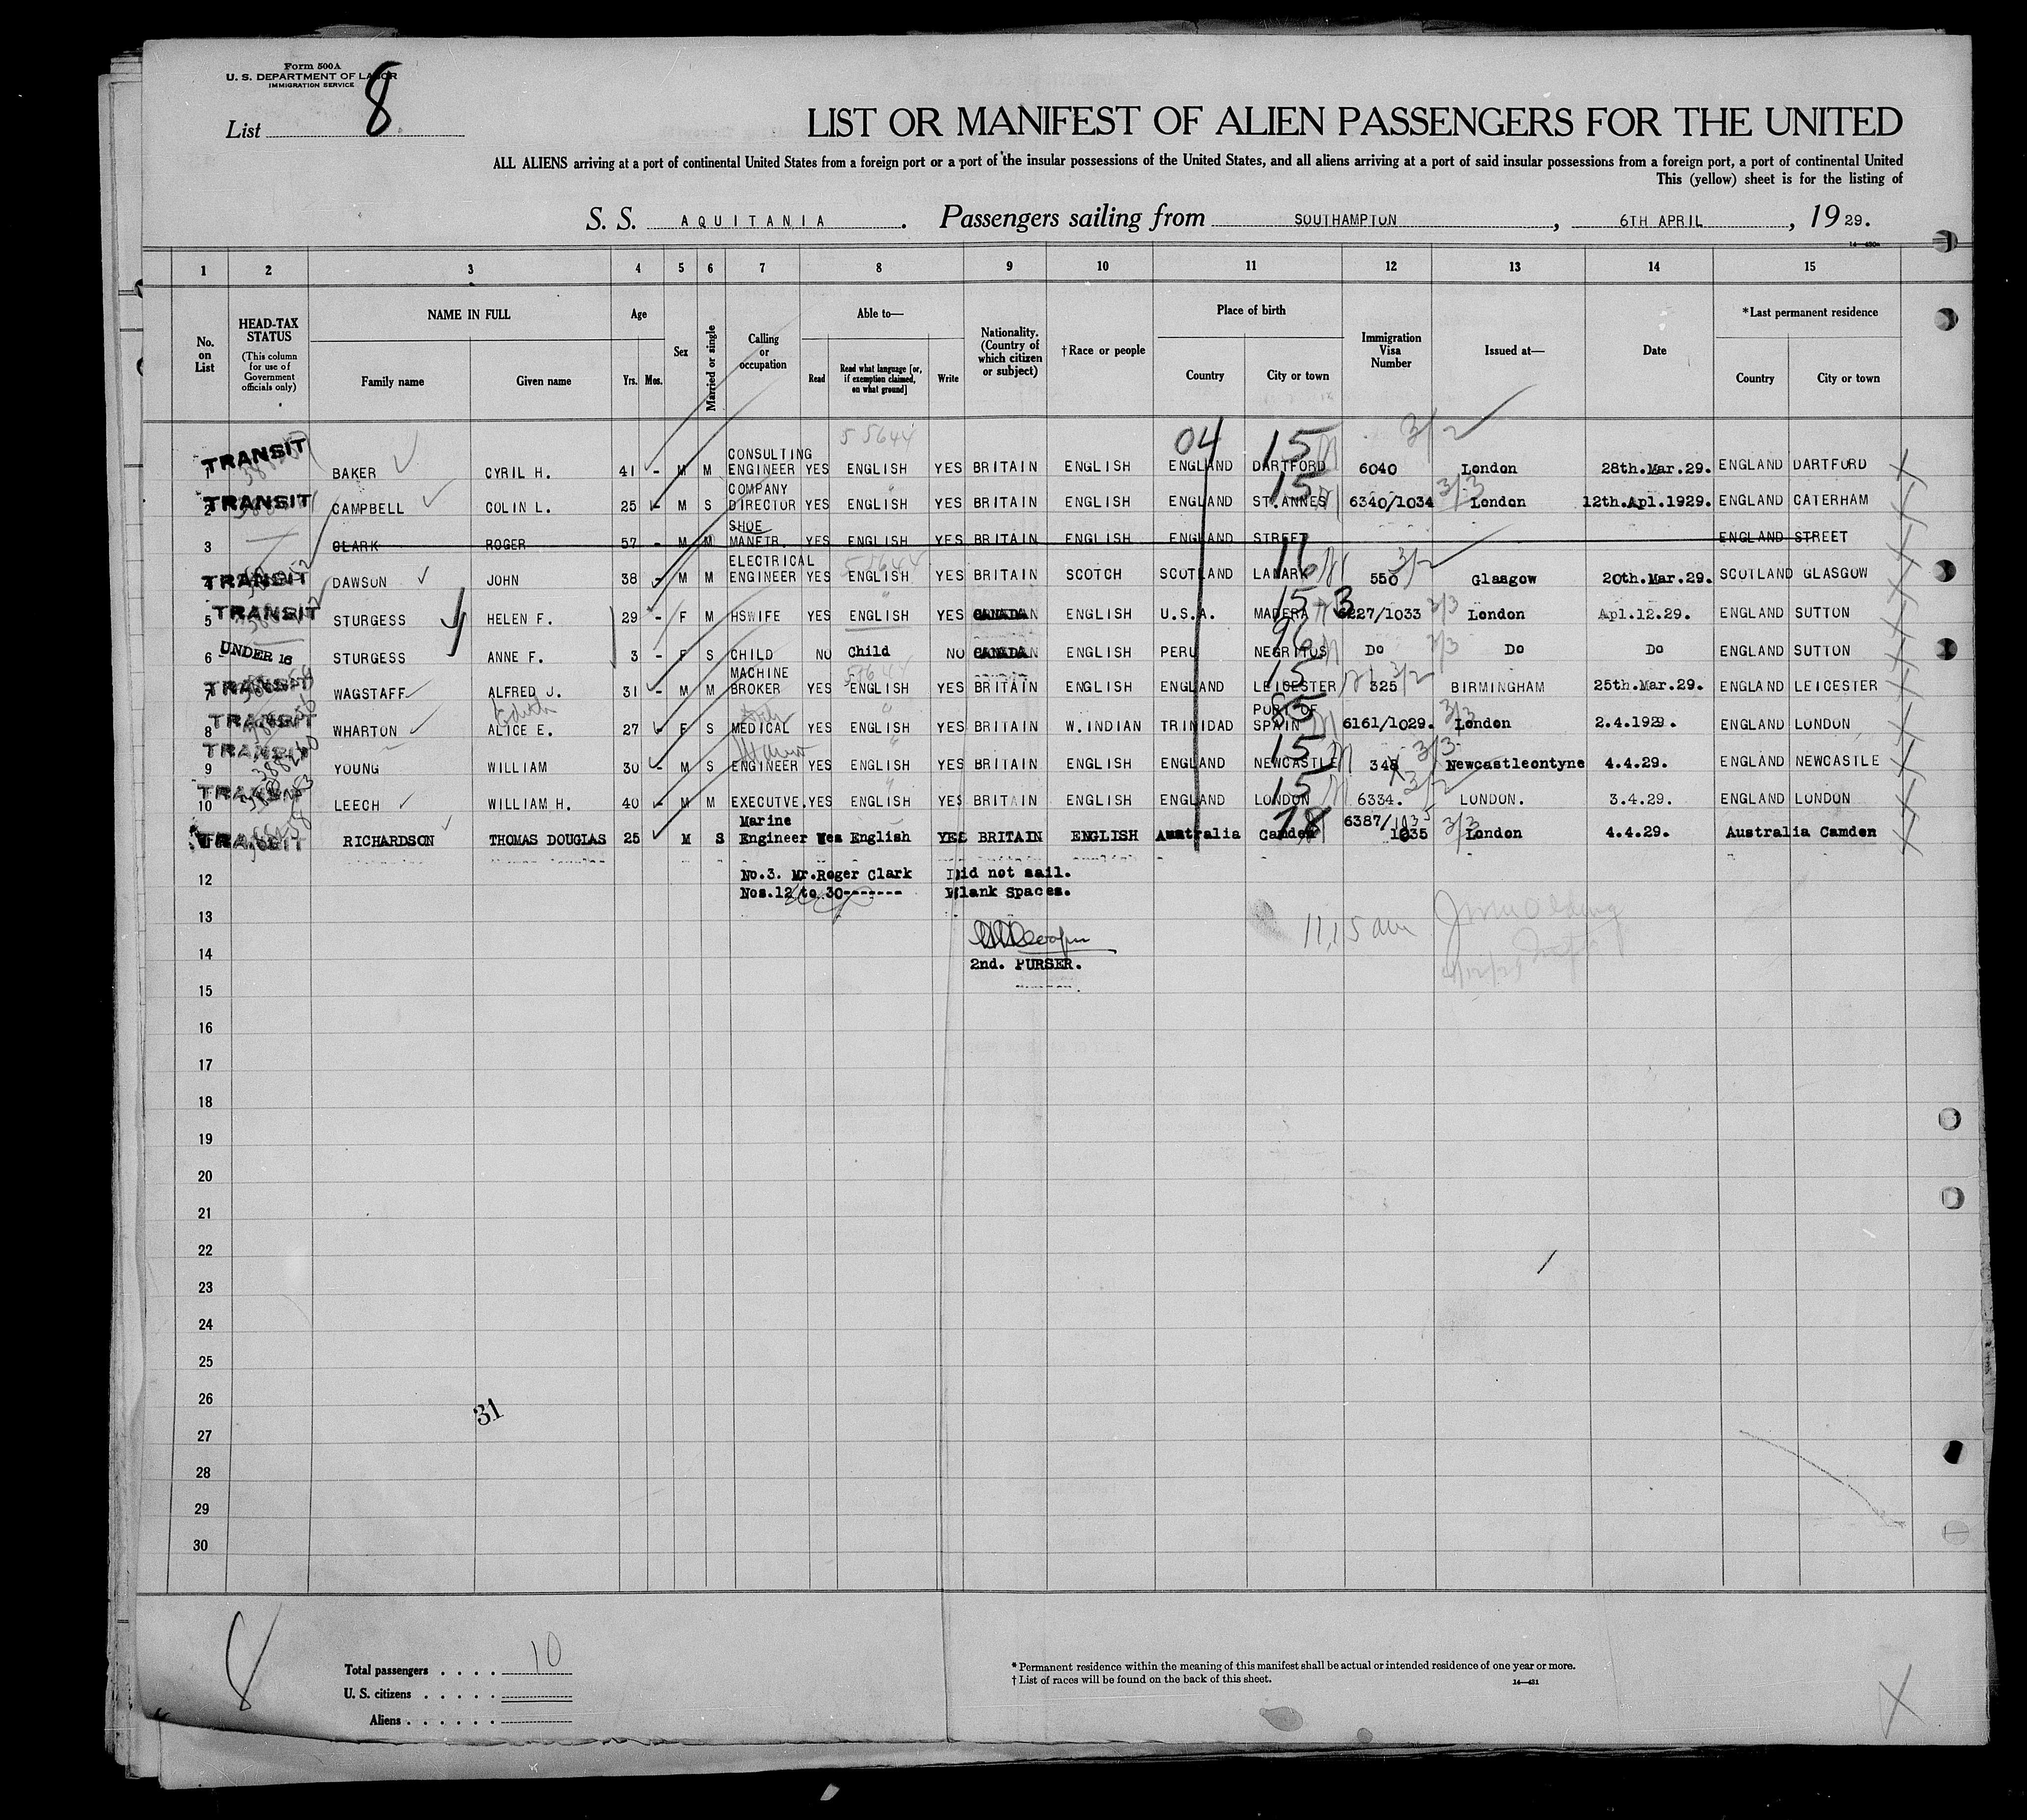 Form 500A
U. S. DEPARTMENT OF LABOR
IMMIGRATION SERVICE
List 8
LIST OR MANIFEST OF ALIEN PASSENGERS FOR THE UNITED
ALL ALIENS arriving at a port of continental United States from a foreign port or a port of the insular possessions of the United States, and all aliens arriving at a port of said insular possessions from a foreign port, a port of continental United
This (yellow) sheet is for the listing of
S. S. AQUITANIA. Passengers sailing from SOUTHAMPTON, 6TH APRIL, 19 29.
1 2 3 4 5 6 7 8 9 10 11 12 13 14 15
No. on List
HEAD-TAX STATUS (This column for use of Government officials only)
NAME IN FULL
Family name Given name
Age
Yrs. Mos.
Sex
Married or single
Calling or occupation
Able to—
Read Read what language [or, if exemption claimed, on what ground] Write
Nationality. (Country of which citizen or subject)
†Race or people
Place of birth
Country City or town
Immigration Visa Number
Issued at—
Date
*Last permanent residence
Country City or town
04 15 3/2
TRANSIT 1 BAKER CYRIL H. 41 - M M CONSULTING ENGINEER YES ENGLISH YES BRITAIN ENGLISH ENGLAND DARTFORD 6040 London 28th.Mar.29. ENGLAND DARTFORD
TRANSIT 2 CAMPBELL COLIN L. 25 - M S COMPANY DIRECTOR YES ENGLISH YES BRITAIN ENGLISH ENGLAND ST.ANNES 15 6340/1034 3/3 London 12th.Apl.1929. ENGLAND CATERHAM
3 CLARK ROGER 57 - M M SHOE MANFTR. YES ENGLISH YES BRITAIN ENGLISH ENGLAND STREET ENGLAND STREET
TRANSIT 4 DAWSON JOHN 38 - M M ELECTRICAL ENGINEER YES ENGLISH YES BRITAIN SCOTCH SCOTLAND LANARK 550 3/2 Glasgow 20th.Mar.29. SCOTLAND GLASGOW
TRANSIT 5 STURGESS HELEN F. 29 - F M HSWIFE YES ENGLISH YES CANADA ENGLISH U.S.A. MADERA 15 6227/1033 3/3 London Apl.12.29. ENGLAND SUTTON
UNDER 16 6 STURGESS ANNE F. 3 - F S CHILD NO Child NO CANADA ENGLISH PERU NEGRITOS 96 Do 3/3 Do Do ENGLAND SUTTON
TRANSIT 7 WAGSTAFF ALFRED J. 31 - M M MACHINE BROKER YES ENGLISH YES BRITAIN ENGLISH ENGLAND LEICESTER 15 325 3/2 BIRMINGHAM 25th.Mar.29. ENGLAND LEICESTER
TRANSIT 8 WHARTON ALICE E. Edith 27 - F S MEDICAL YES ENGLISH YES BRITAIN W.INDIAN TRINIDAD PORT OF SPAIN 6161/1029. 3/3 London 2.4.1929. ENGLAND LONDON
TRANSIT 9 YOUNG WILLIAM 30 - M S ENGINEER YES ENGLISH YES BRITAIN ENGLISH ENGLAND NEWCASTLE 15 348 3/3 Newcastleontyne 4.4.29. ENGLAND NEWCASTLE
TRANSIT 10 LEECH WILLIAM H. 40 - M M EXECUTVE. YES ENGLISH YES BRITAIN ENGLISH ENGLAND LONDON 15 6334. 3/2 LONDON. 3.4.29. ENGLAND LONDON
TRANSIT RICHARDSON THOMAS DOUGLAS 25 M S Marine Engineer Yes English YES BRITAIN ENGLISH Australia Camden 78 6387/1035 3/3 London 4.4.29. Australia Camden
12 No.3. Mr.Roger Clark Did not sail.
Nos.12 to 30------- Blank Spaces.
13
11,15 am
14
2nd. PURSER.
15
16
17
18
19
20
21
22
23
24
25
26
31
27
28
29
30
8
Total passengers . . . . 10
U. S. citizens . . . . .
Aliens . . . . . .
* Permanent residence within the meaning of this manifest shall be actual or intended residence of one year or more.
† List of races will be found on the back of this sheet.
14—431